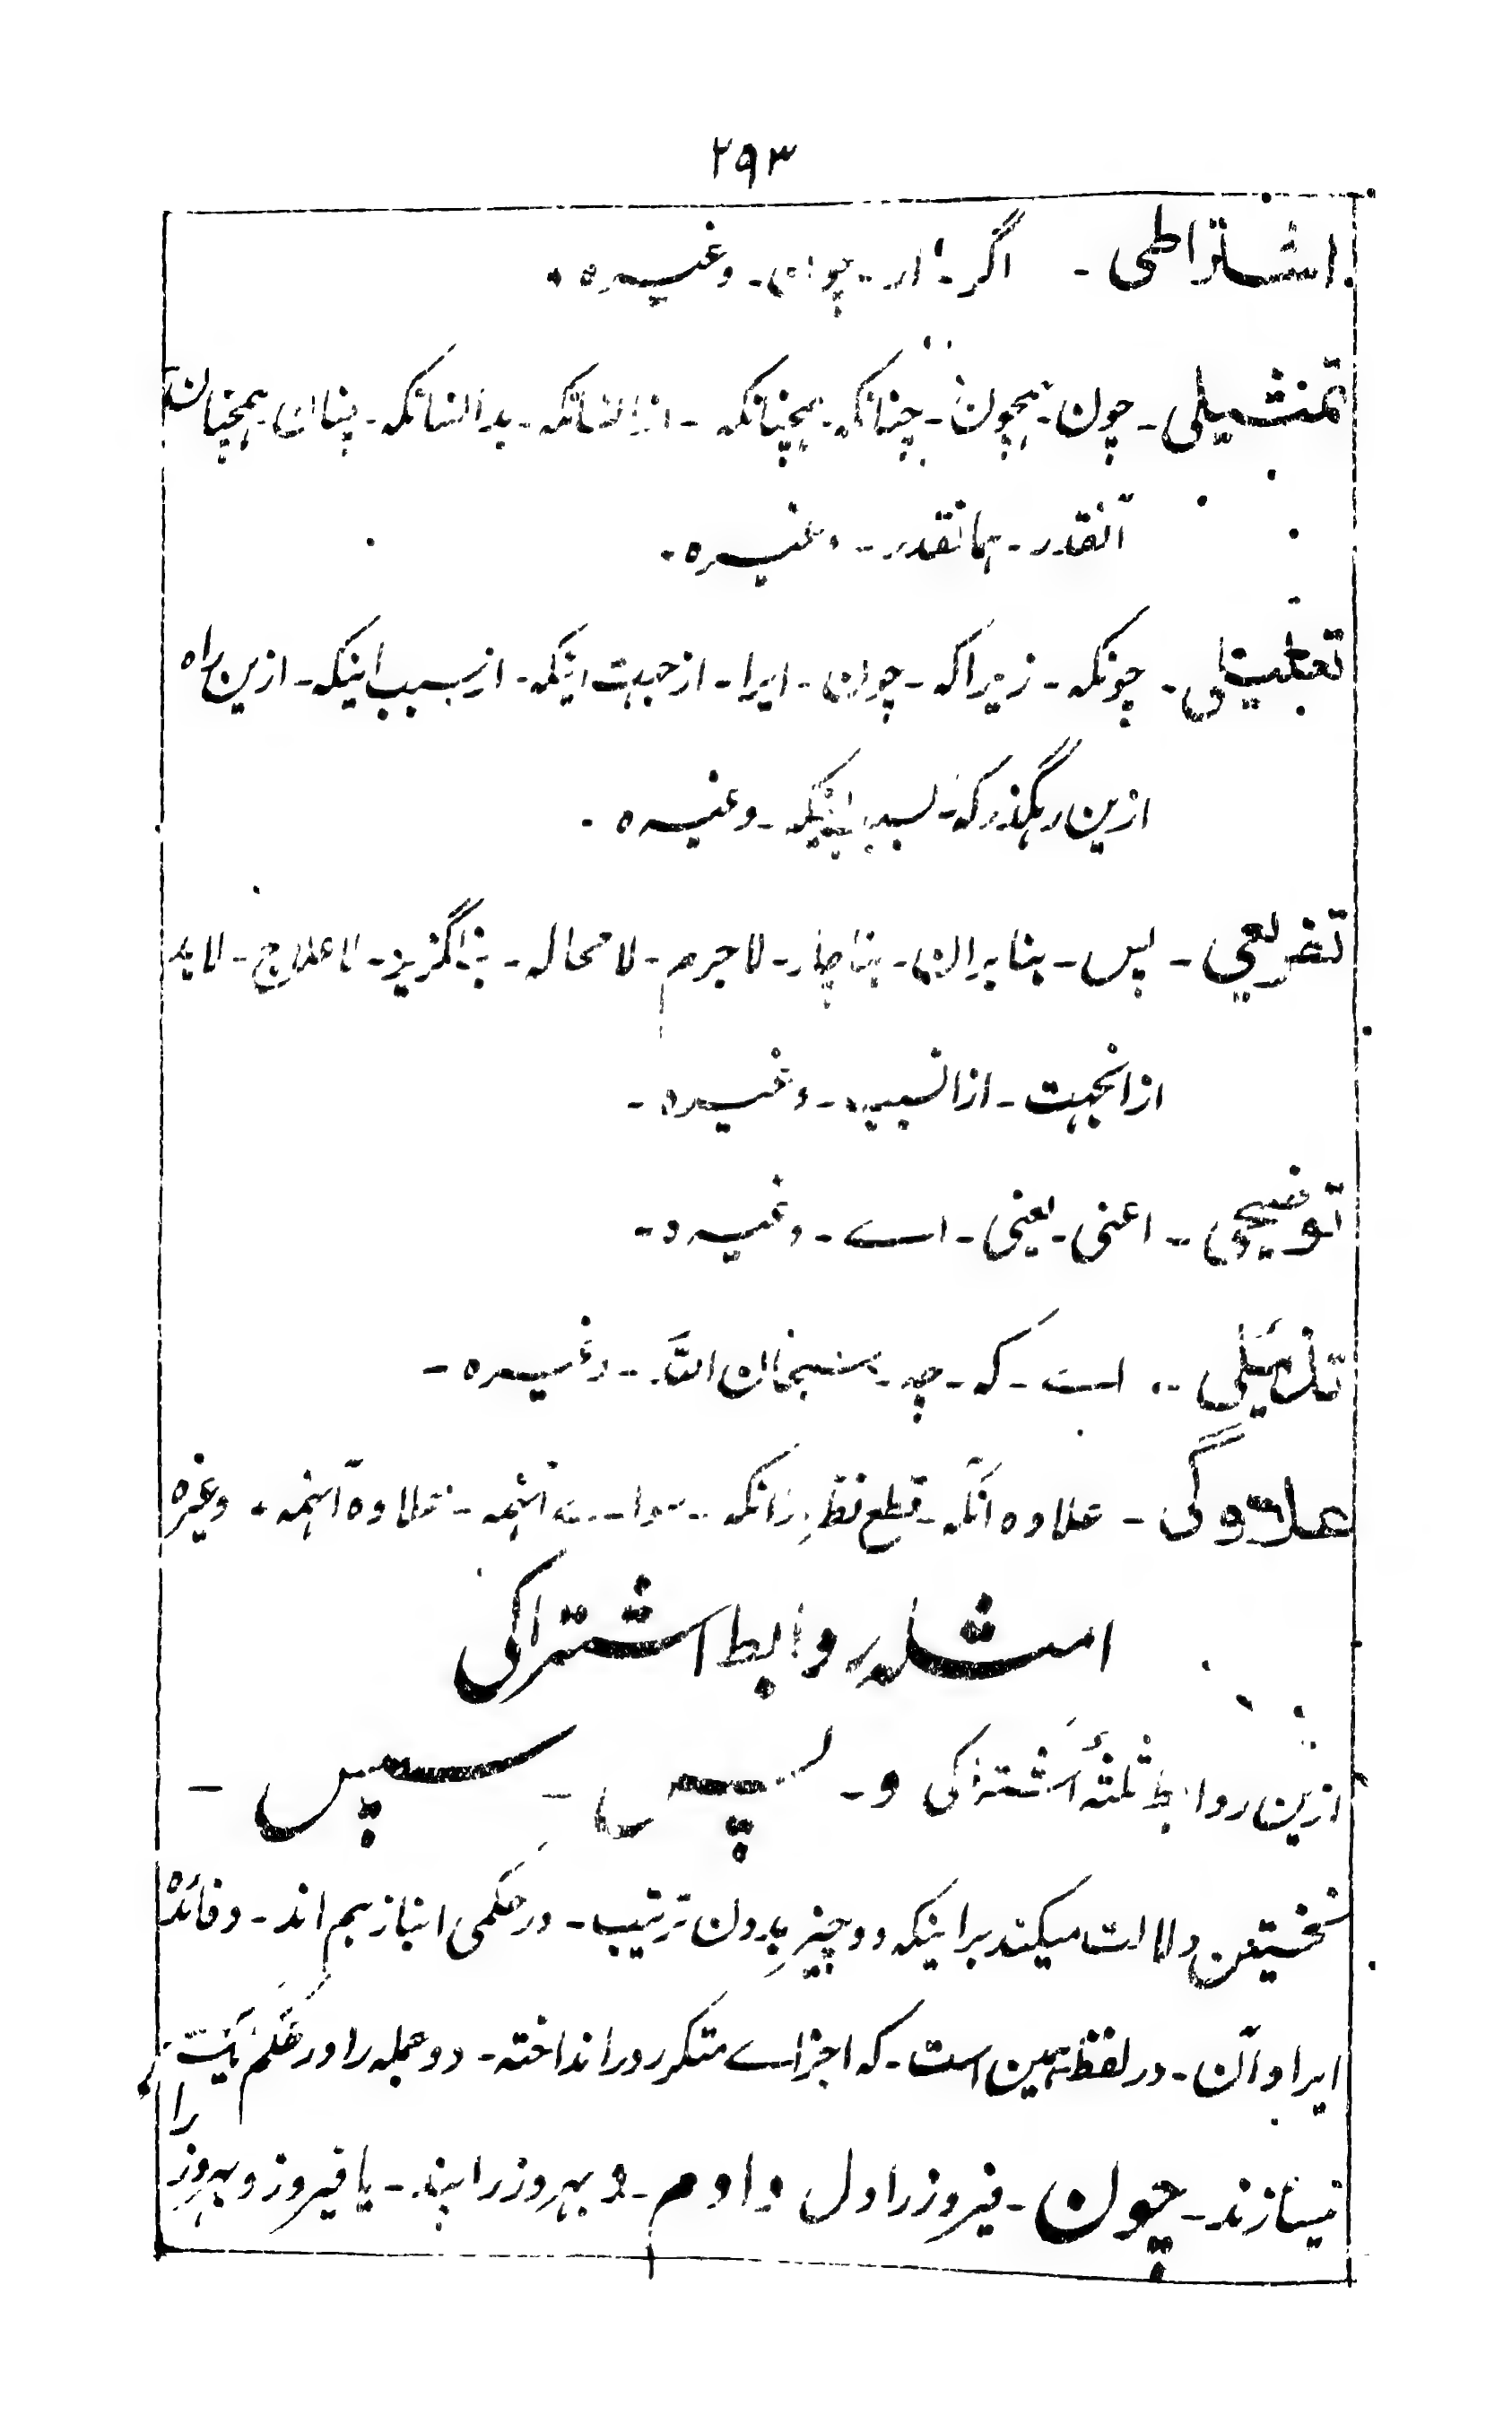 ۲۹۳
اشتراطی - اگر - ار - چون - وغیره
تمثیلی - چون - همچون - چنانکه - همچنانکه - ازانسانکه - بدانسانکه - چنان - همچنان
آنقدر - همانقدر - وغیره -
تعلیلی - چونکه - زیراکه - چون - ایرا - از جهت اینکه - از سبب اینکه - ازین راه
ازین رهگذر که - بسبب اینکه - وغیره -
تفریعی - پس - بنابران - بناچار - لاجرم - لامحاله - بناگزیز - لاعلاج - لابد
ازانجهت - ازانسبب - وغیره -
توضیحی - اعنی - یعنی - اے - وغیره -
تذئیلی - که - چه - سبحان الله - وغیره -
علاوگی - علاوه آنکه - قطع نظر زانکه - سواے اینهمه - علاوه اینهمه - وغیره
امثله روابط اشتراکی
ازین روابط ثلثهٔ اشتراکی و - پس - سپس -
نخستین دلالت میکند بر اینکه دو چیز بدون ترتیب - در حکمی انباز هم اند - و فائدهٔ
ایراد آن - در لفظ همین است - که اجزاے متکرر دور انداخته - دو جمله را در حکم یک
میسازند - چون - فیروز را دل دادم - و بهروز را پند - یا فیروز و بهروز را